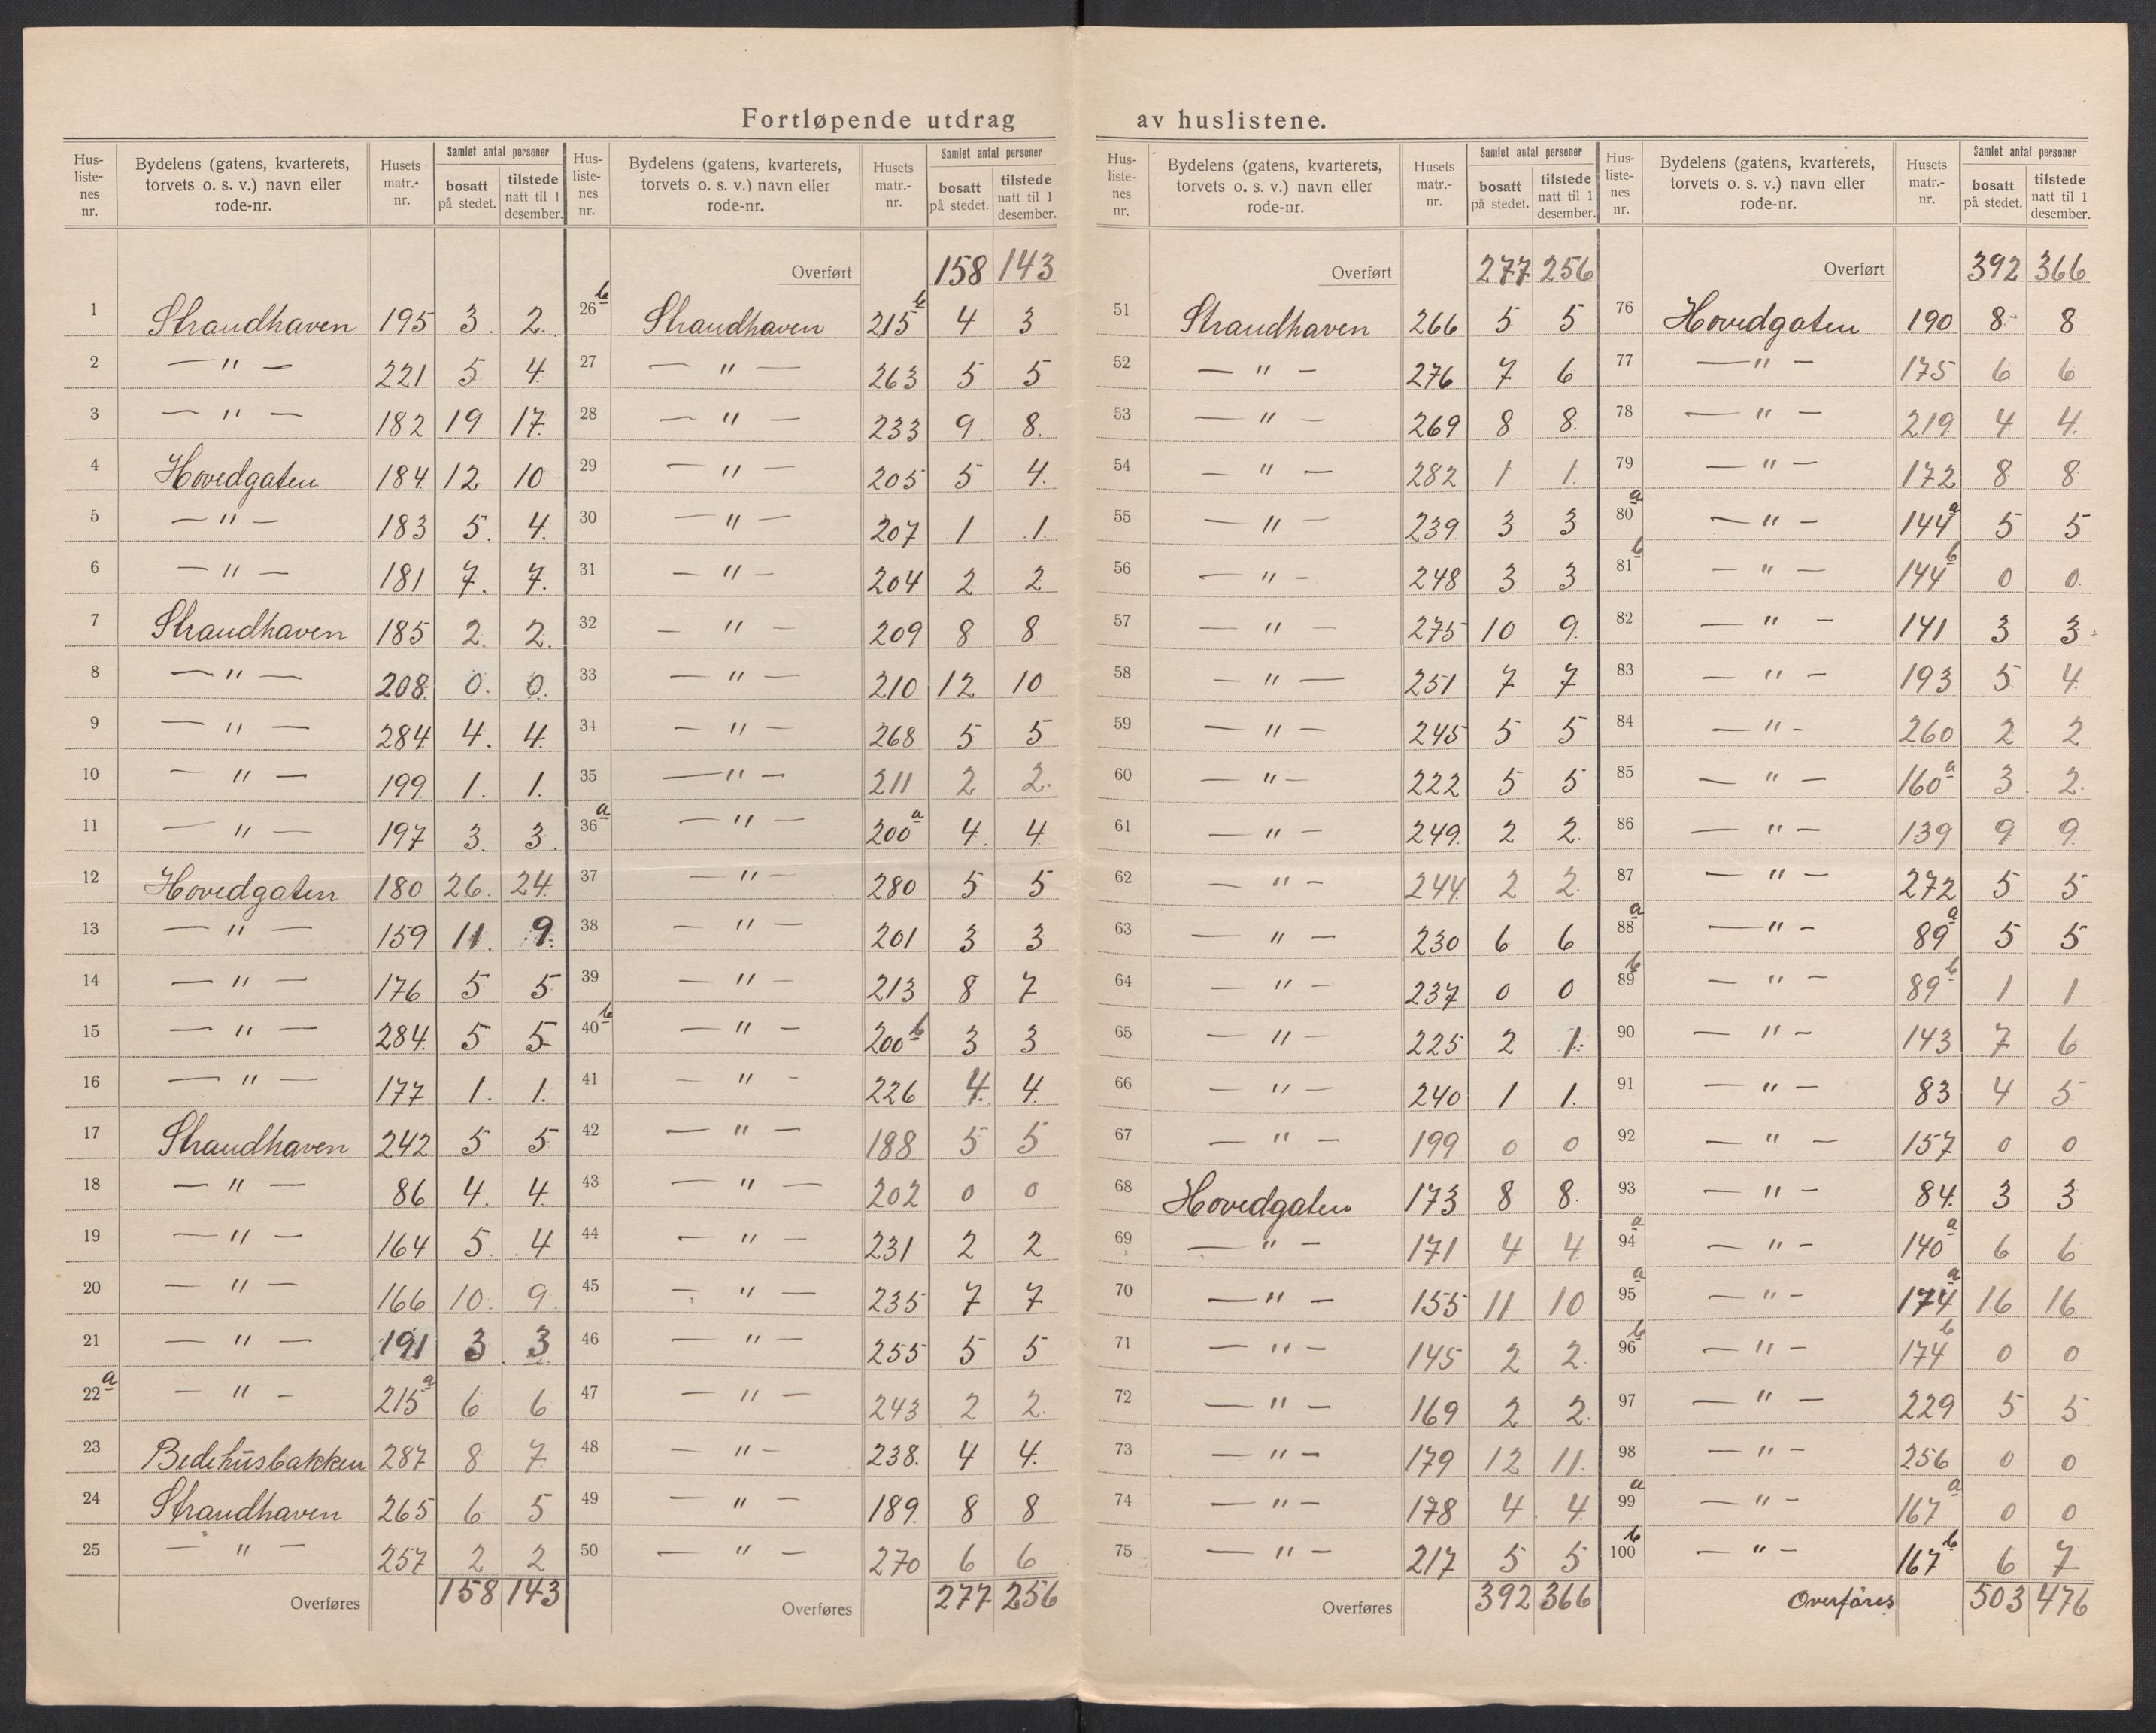 Fortløpende utdrag av huslistene.
Hus-listenes nr. | Bydelens (gatens, kvarterets, torvets o. s. v.) navn eller rode-nr. | Husets matr.-nr. | Samlet antal personer bosatt på stedet. | tilstede natt til 1 desember.
1 Strandhaven 195 3. 2.
2 — " — 221 5 4.
3 — " — 182 19 17.
4 Hovedgaten 184. 12 10
5 — " — 183 5. 4.
6 — " — 181 7. 7.
7 Strandhaven 185 2. 2.
8 — " — 208. 0. 0.
9 — " — 284. 4. 4.
10 — " — 199. 1. 1.
11 — " — 197 3. 3.
12 Hovedgaten 180 26. 24.
13 — " — 159 11. 9.
14 — " — 176 5 5
15 — " — 284. 5 5
16 — " — 177 1. 1.
17 Strandhaven 242 5 5
18 — " — 86 4. 4.
19 — " — 164 5. 4
20 — " — 166 10. 9.
21 — " — 191 3 3
22a — " — 215a 6 6
23 Bedehusbakken 287 8 7.
24 Strandhaven 265 6 5
25 — " — 257 2 2
Overføres 158 143
Hus-listenes nr. | Bydelens (gatens, kvarterets, torvets o. s. v.) navn eller rode-nr. | Husets matr.-nr. | Samlet antal personer bosatt på stedet. | tilstede natt til 1 desember.
Overført 158 143
26b Strandhaven 215b 4 3
27 — " — 263 5 5
28 — " — 233 9 8.
29 — " — 205 5 4.
30 — " — 207 1. 1.
31 — " — 204 2 2
32 — " — 209 8 8
33 — " — 210 12 10
34 — " — 268 5 5
35 — " — 211 2 2.
36a — " — 200a 4. 4.
37 — " — 280 5 5
38 — " — 201 3 3
39 — " — 213 8 7
40b — " — 200b 3 3
41 — " — 226 4. 4.
42 — " — 188 5 5
43 — " — 202 0 0
44 — " — 231 2 2
45 — " — 235 7 7
46 — " — 255 5 5
47 — " — 243 2 2.
48 — " — 238. 4 4.
49 — " — 189. 8 8
50 — " — 270 6 6
Overføres 277 256
Hus-listenes nr. | Bydelens (gatens, kvarterets, torvets o. s. v.) navn eller rode-nr. | Husets matr.-nr. | Samlet antal personer bosatt på stedet. | tilstede natt til 1 desember.
Overført 277 256
51 Strandhaven 266 5 5
52 — " — 276 7 6
53 — " — 269 8 8.
54 — " — 282 1 1.
55 — " — 239. 3 3
56 — " — 248 3 3
57 — " — 275 10 9.
58 — " — 251 7 7
59 — " — 245 5 5
60 — " — 222 5 5
61 — " — 249. 2 2.
62 — " — 244. 2 2.
63 — " — 230 6 6
64 — " — 237 0 0
65 — " — 225 2 1.
66 — " — 240 1 1.
67 — " — 199 0 0
68 Hovedgaten 173 8 8.
69 — " — 171 4 4.
70 — " — 155 11 10
71 — " — 145 2 2.
72 — " — 169 2 2.
73 — " — 179 12 11.
74 — " — 178 4 4.
75 — " — 217 5 5
Overføres 392 366
Hus-listenes nr. | Bydelens (gatens, kvarterets, torvets o. s. v.) navn eller rode-nr. | Husets matr.-nr. | Samlet antal personer bosatt på stedet. | tilstede natt til 1 desember.
Overført 392 366
76 Hovedgaten 190 8 8
77 — " — 175 6 6
78 — " — 219. 4 4.
79 — " — 172 8 8
80a — " — 144a 5 5
81b — " — 144b 0 0.
82 — " — 141 3 3
83 — " — 193 5 4.
84 — " — 260 2 2
85 — " — 160a 3 2.
86 — " — 139 9 9.
87 — " — 272 5 5
88a — " — 89a 5 5
89b — " — 89b 1 1
90 — " — 143 7 6
91 — " — 83 4 5
92 — " — 157 0 0
93 — " — 84. 3 3
94a — " — 140a 6 6
95a — " — 174a 16 16
96b — " — 174b 0 0
97 — " — 229 5 5
98 — " — 256 0 0
99a — " — 167a 0 0
100b — " — 167b 6 7
Overføres 503 476